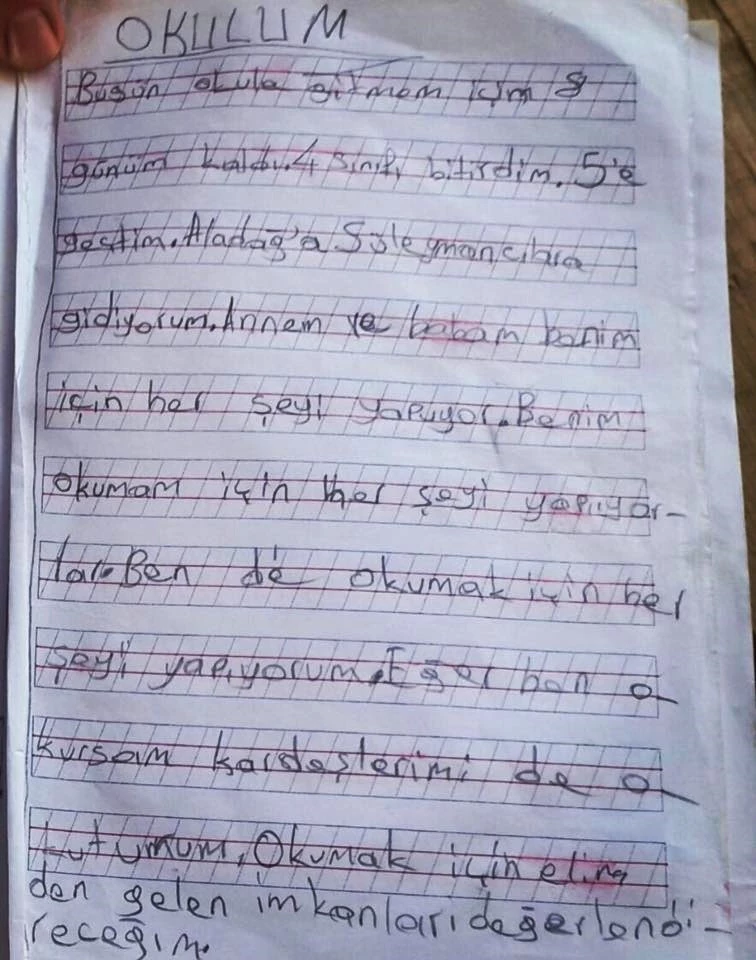 OKULUM
Bugün okula gitmem için 8
günüm kaldı.4 sınıfı bitirdim. 5'e
geçtim.Aladağ'a Süleymancılara
gidiyorum.Annem ve babam banim
için her şeyi yapıyor.Benim
okumam için her şeyi yapıyor-
lar.Ben de okumak için her
şeyi yapıyorum.Eğer ben o-
kursam kardeşlerimi de o-
kutumum, Okumak için elim
den gelen imkanları değerlendi-
receğim.